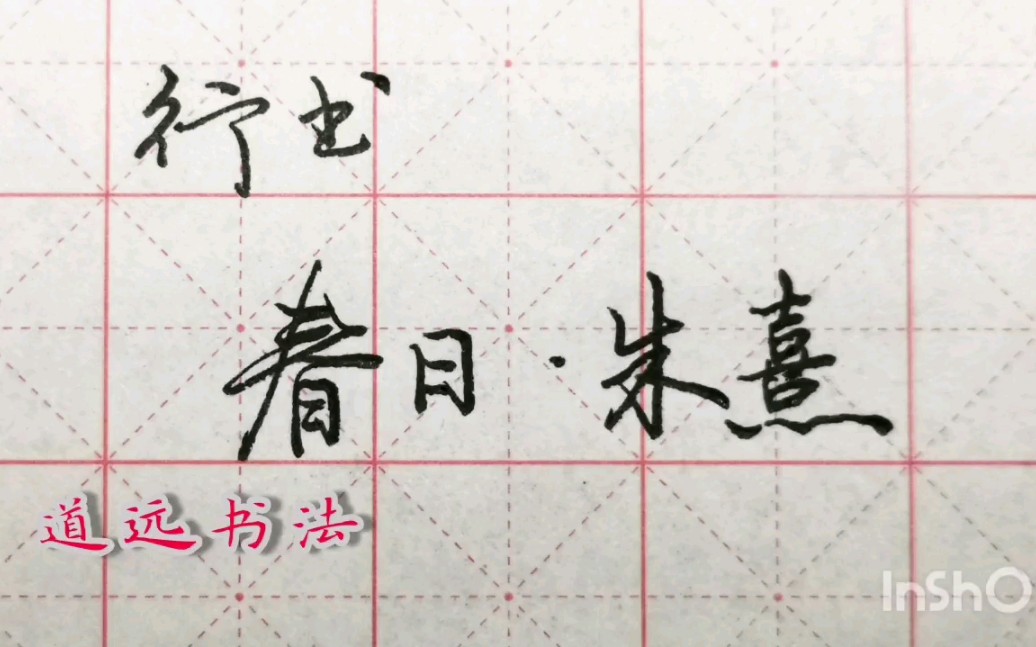 行书
春日·朱熹
道远书法
InShO